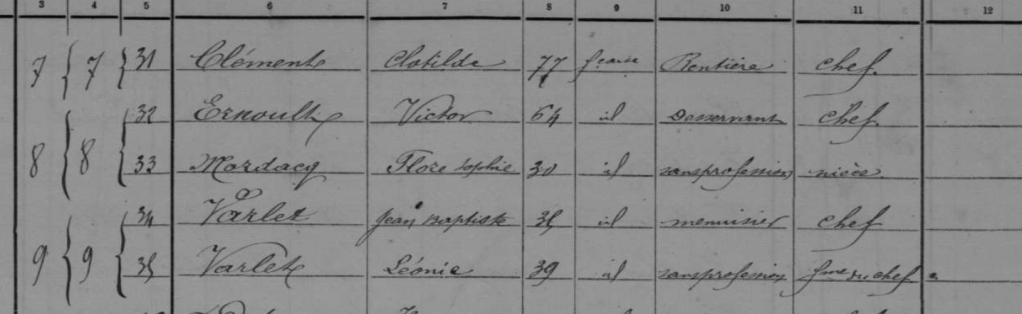 3 4 5 6 7 8 9 10 11 12
7 7 31 Clément Clotilde 77 fçaise Rentière chef
32 Ernoult Victor 64 id Desservant chef
8 8 33 Mordacq Flore Sophie 30 id sans profession nièce
34 Varlet Jean Baptiste 35 id menuisier chef
9 9 35 Varlet Léonie 39 id sans profession fme du chef